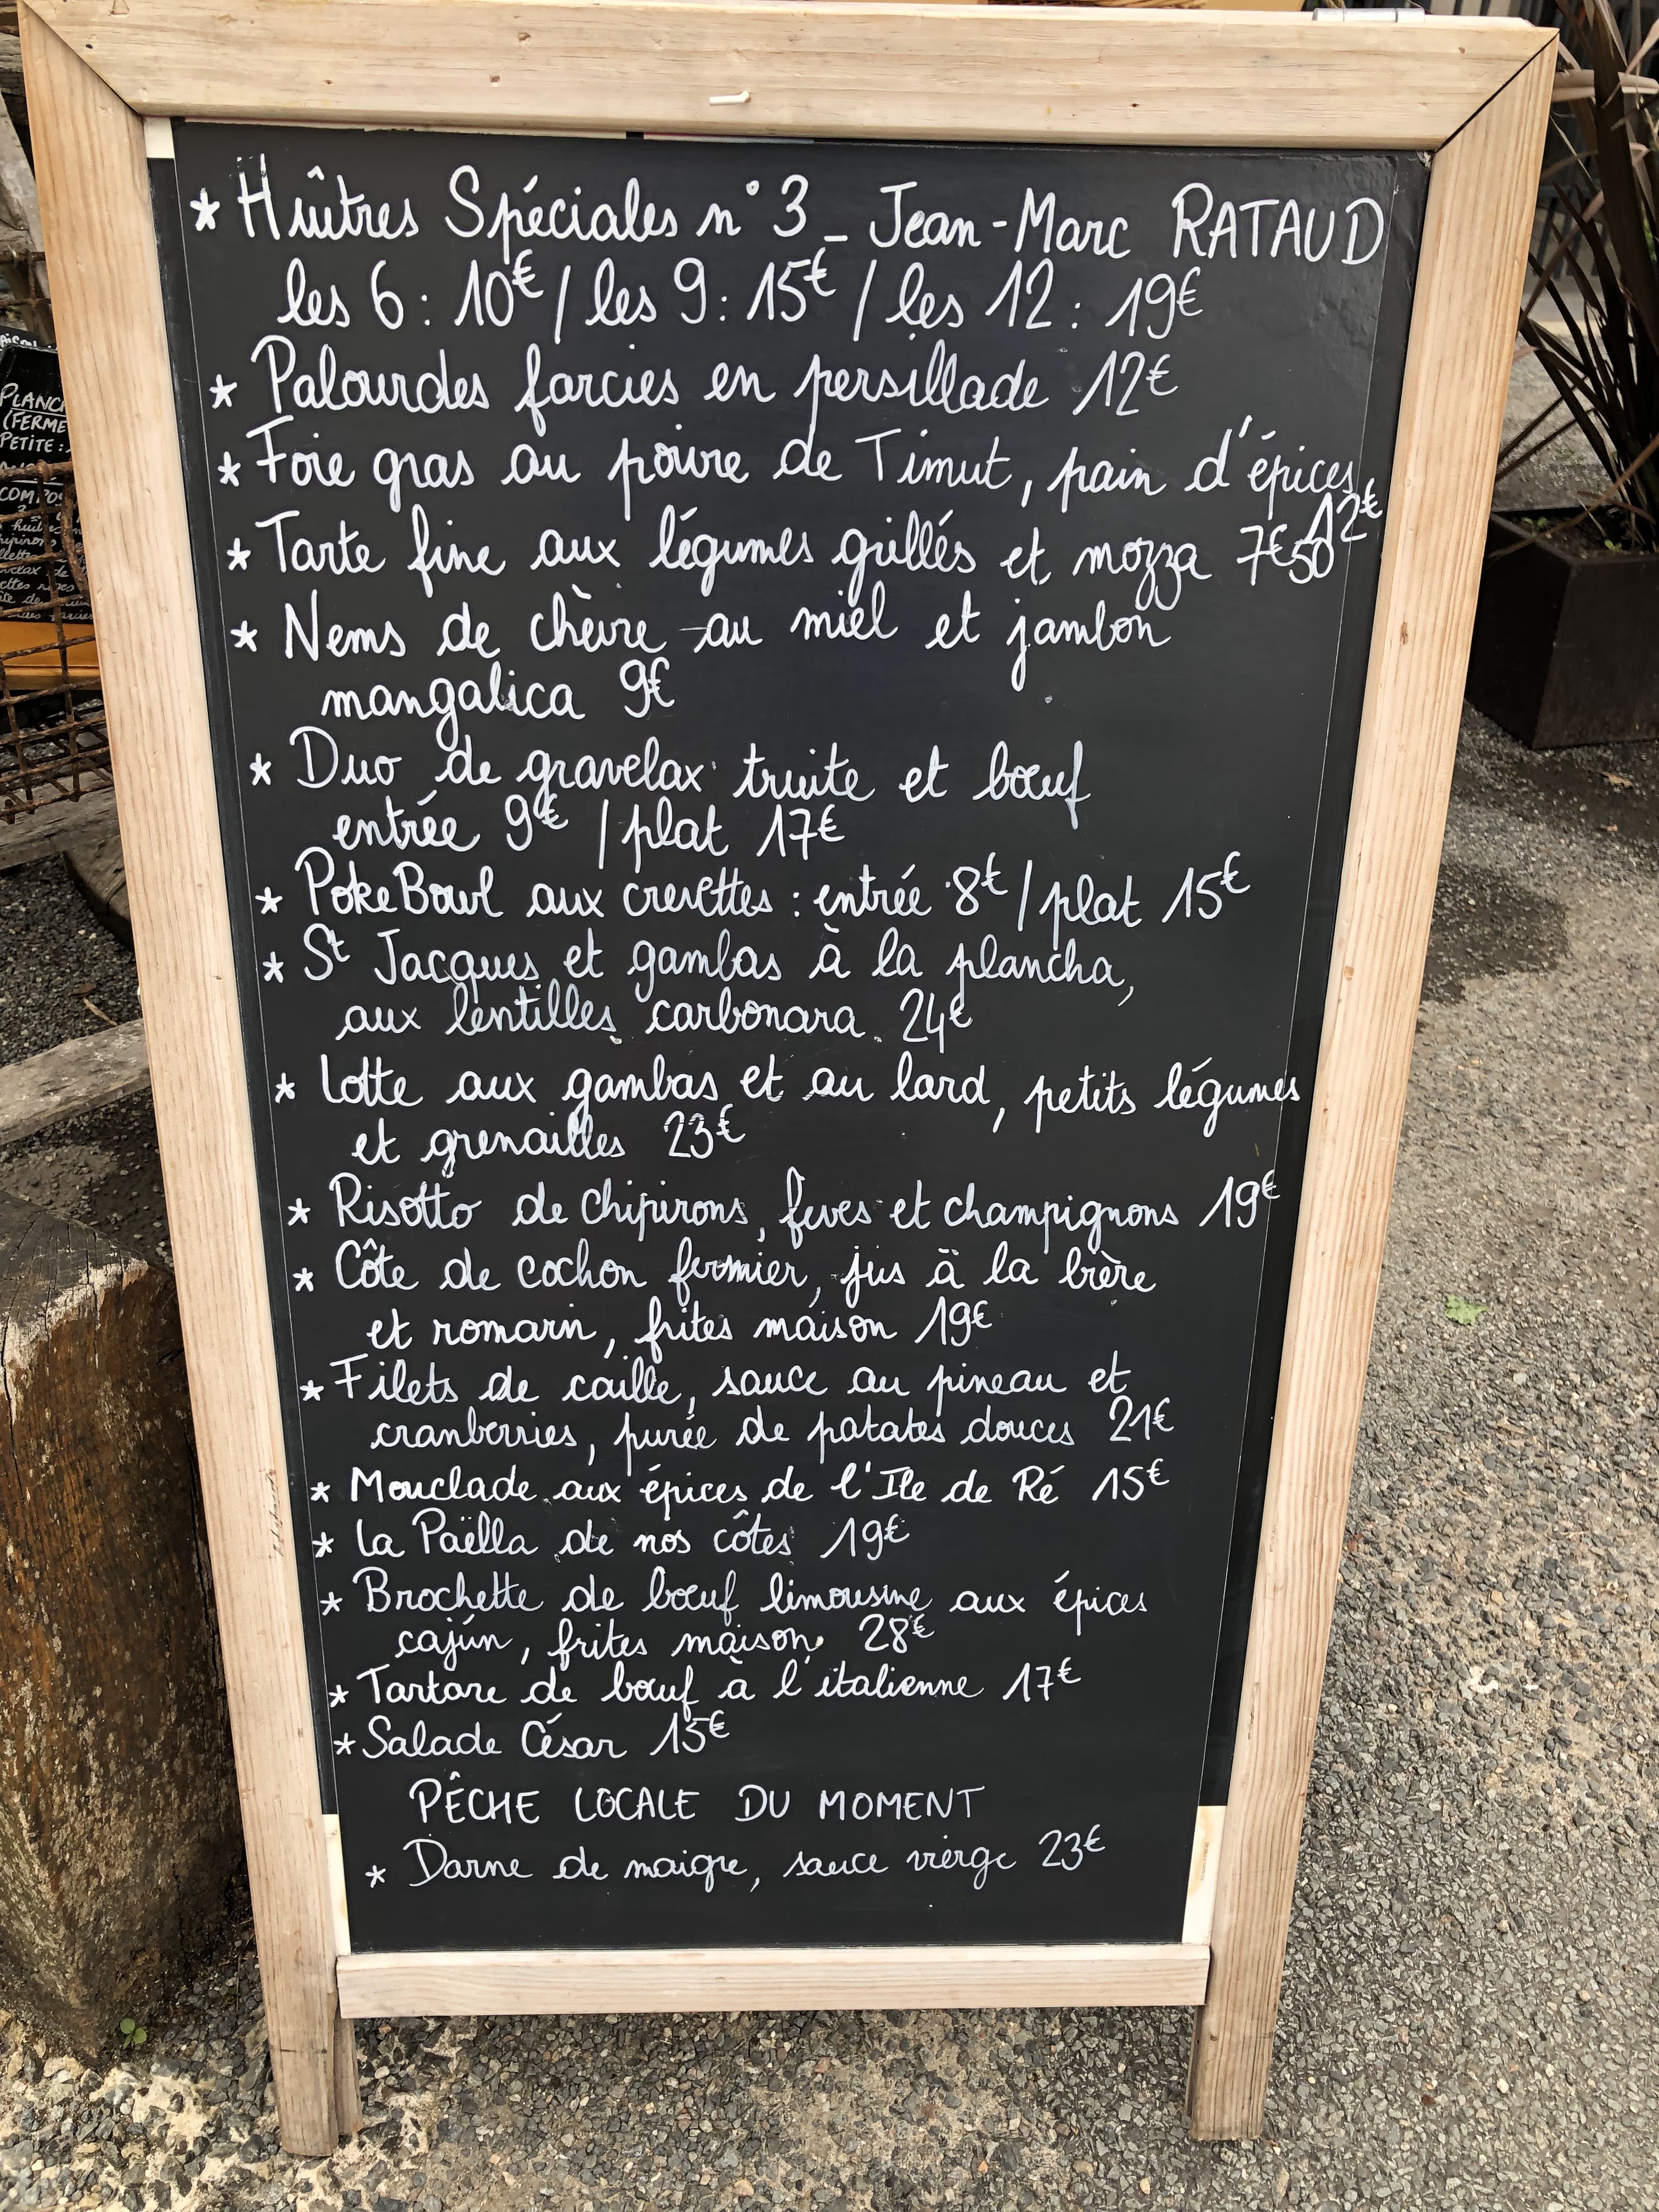 * Huîtres Spéciales n°3 - Jean-Marc RATAUD
les 6 : 10€ / les 9 : 15€ / les 12 : 19€
* Palourdes farcies en persillade 12€
* Foie gras au poivre de Timut, pain d'épices
12€
* Tarte fine aux légumes grillés et mozza 7€50
* Nems de chèvre au miel et jambon
mangalica 9€
* Duo de gravelax truite et bœuf
entrée 9€ / plat 17€
* PokeBowl aux crevettes : entrée 8€ / plat 15€
* St Jacques et gambas à la plancha,
aux lentilles carbonara 24€
* Lotte aux gambas et au lard, petits légumes
et grenailles 23€
* Risotto de chipirons, feves et champignons 19€
* Côte de cochon fermier, jus à la bière
et romarin, frites maison 19€
* Filets de caille, sauce au pineau et
cranberries, purée de patates douces 21€
* Mouclade aux épices de l'Ile de Ré 15€
* La Paëlla de nos côtes 19€
* Brochette de bœuf limousine aux épices
cajun, frites maison 28€
* Tartare de bœuf à l'italienne 17€
* Salade César 15€
PÊCHE LOCALE DU MOMENT
* Darne de maigre, sauce vierge 23€
PLANC
(FERME
PETITE :
COMPOS